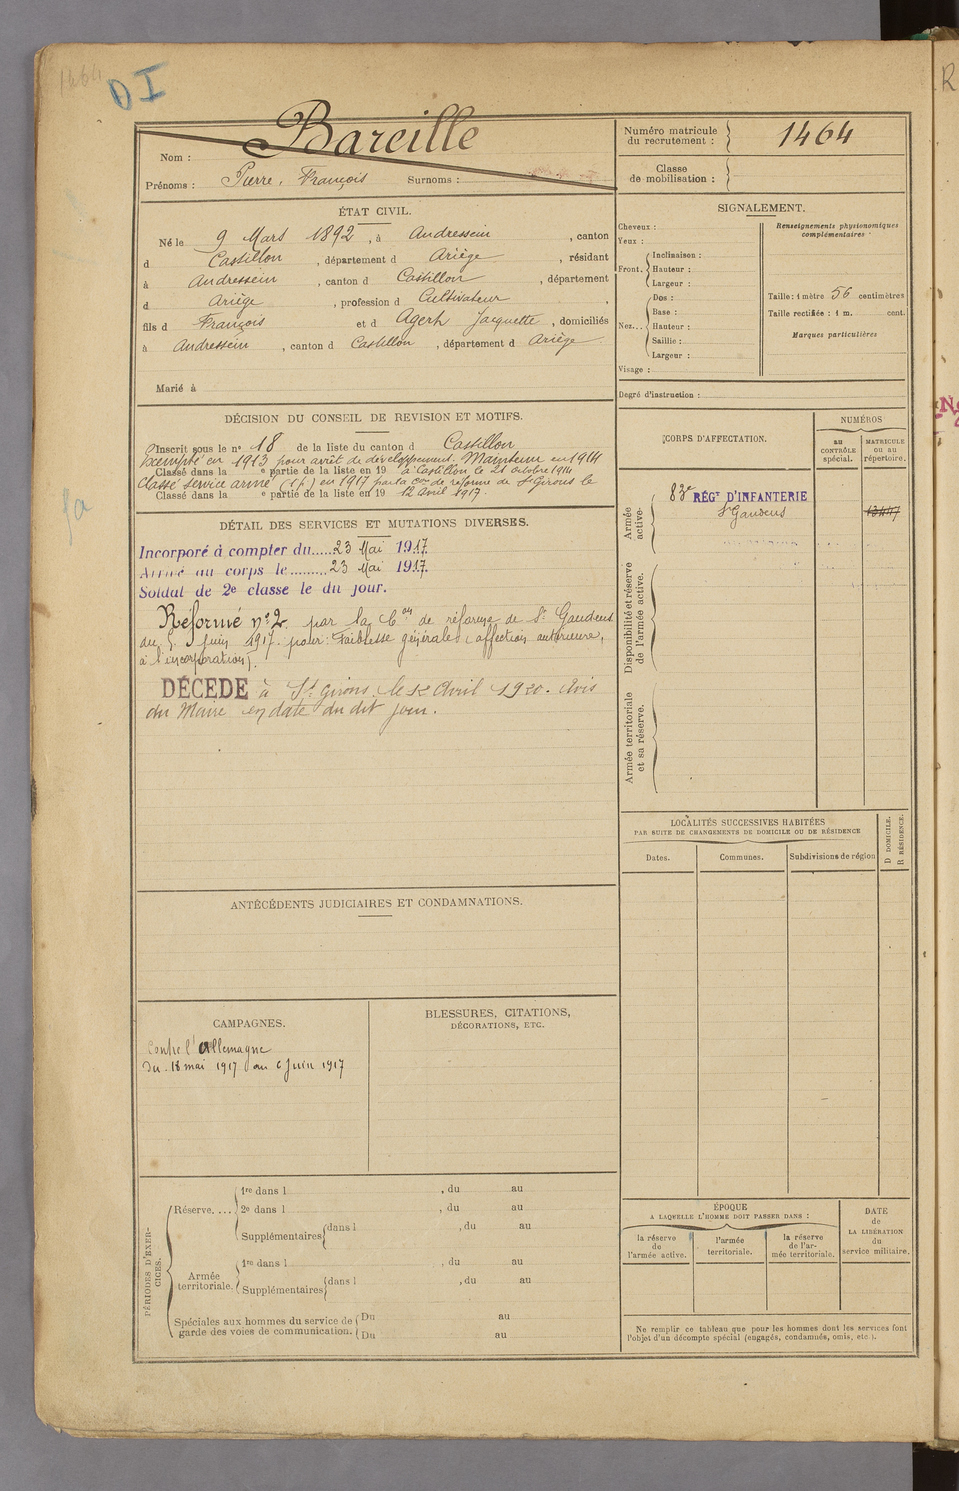 1464
DI
Nom : Bareille
Prénoms : Pierre, François Surnoms :
Numéro matricule
du recrutement : 1464
Classe
de mobilisation :
ÉTAT CIVIL.
Né le 9 Mars 1892, à Andressein, canton
d Castillon, département d Ariège, résidant
à Andressein, canton d Castillon, département
d Ariège, profession d Cultivateur,
fils d François et d Agert Jacquette, domiciliés
à Andressein, canton d Castillon, département d Ariège.
Marié à
SIGNALEMENT.
Cheveux :
Yeux :
Front. Inclinaison :
Hauteur :
Largeur :
Nez... Dos :
Base :
Hauteur :
Saillie :
Largeur :
Visage :
Renseignements physionomiques
complémentaires :
Taille : 1 mètre 56 centimètres
Taille rectifiée : 1 m. cent.
Marques particulières
Degré d'instruction :
DÉCISION DU CONSEIL DE REVISION ET MOTIFS.
Inscrit sous le n° 18 de la liste du canton d Castillon
Exempté en 1913 pour arrêt de développement. Maintenu en 1914
Classé dans la e partie de la liste en 19 à Castillon le 21 octobre 1914
Classé service armé (1 p) en 1917 par la Con de réforme de St Girons le
Classé dans la e partie de la liste en 19 12 Avril 1917.
DÉTAIL DES SERVICES ET MUTATIONS DIVERSES.
Incorporé à compter du..... 23 Mai 1917.
Arrivé au corps le......... 23 Mai 1917.
Soldat de 2e classe le du jour.
Réformé n° 2 par la Con de réforme de St Gaudens
du 5 Juin 1917. pour : Faiblesse générale (affection antérieure,
à l'incorporation).
DÉCÉDÉ à St Girons, le 12 Avril 1920. Avis
du Maire en date du dit jour.
CORPS D'AFFECTATION.
NUMÉROS
au
CONTRÔLE
spécial.
MATRICULE
ou au
répertoire.
Armée
active.
83e RÉGT D'INFANTERIE
St Gaudens
Disponibilité et réserve
de l'armée active.
Armée territoriale
et sa réserve.
LOCALITÉS SUCCESSIVES HABITÉES
PAR SUITE DE CHANGEMENTS DE DOMICILE OU DE RÉSIDENCE
Dates.
Communes.
Subdivisions de région
D DOMICILE.
R RÉSIDENCE.
ANTÉCÉDENTS JUDICIAIRES ET CONDAMNATIONS.
CAMPAGNES.
Contre l'Allemagne
Du 18 mai 1917 au 6 Juin 1917
BLESSURES, CITATIONS,
DÉCORATIONS, ETC.
PÉRIODES D'EXER-
CICES.
Réserve....
1re dans l , du au
2e dans l , du au
Supplémentaires dans l , du au
Armée
territoriale.
1re dans l , du au
Supplémentaires dans l , du au
Spéciales aux hommes du service de
garde des voies de communication.
Du au
Du au
ÉPOQUE
A LAQUELLE L'HOMME DOIT PASSER DANS :
la réserve
de
l'armée active.
l'armée
territoriale.
la réserve
de l'ar-
mée territoriale.
DATE
de
LA LIBÉRATION
du
service militaire.
Ne remplir ce tableau que pour les hommes dont les services font
l'objet d'un décompte spécial (engagés, condamnés, omis, etc.).